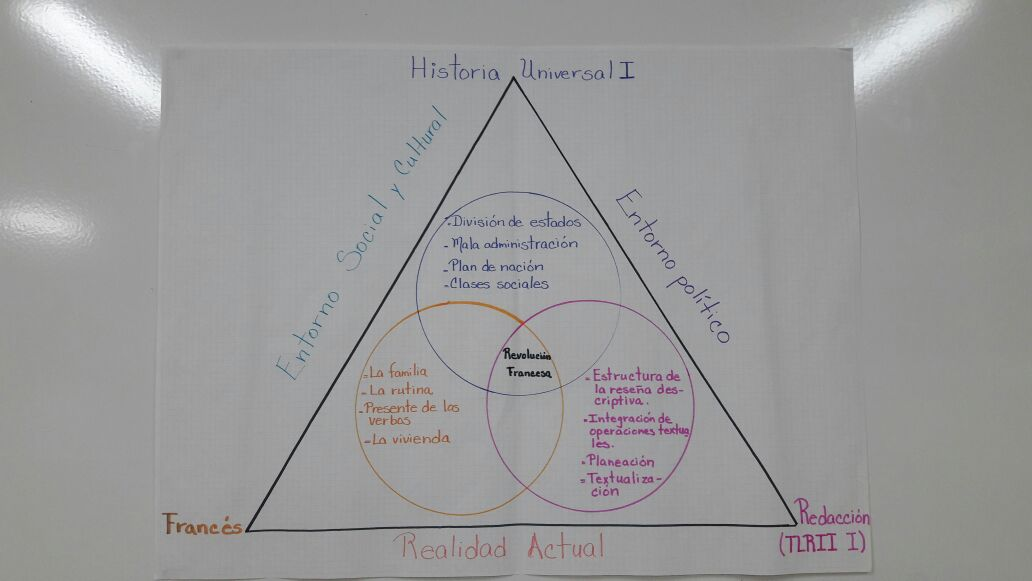 Historia Universal I
Entorno Social y Cultural
Entorno político
-División de estados
-Mala administración
-Plan de nación
-Clases sociales
Revolución
Francesa
-La familia
-La rutina
-Presente de los
verbos
-La vivienda
-Estructura de
la reseña des-
criptiva.
-Integración de
operaciones textua
les.
-Planeación
-Textualiza-
ción
Francés
Redacción
(TLRII I)
Realidad Actual